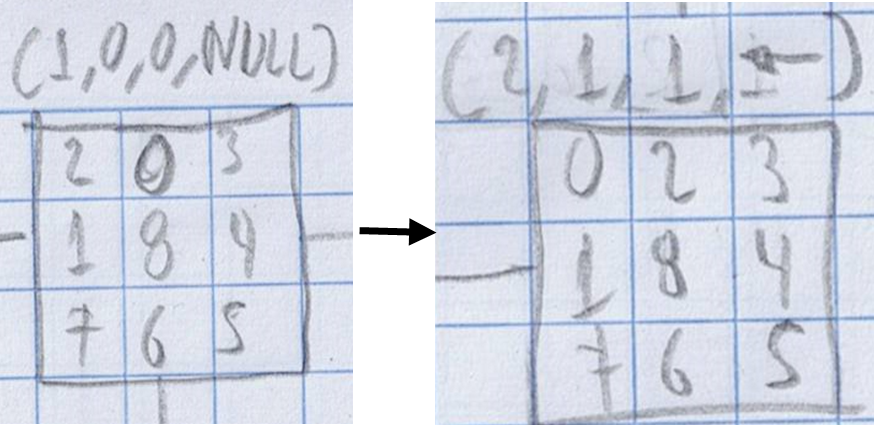 (1,0,0,NULL)
2 0 3
1 8 4
7 6 5
(2,1,1,←)
0 2 3
1 8 4
7 6 5